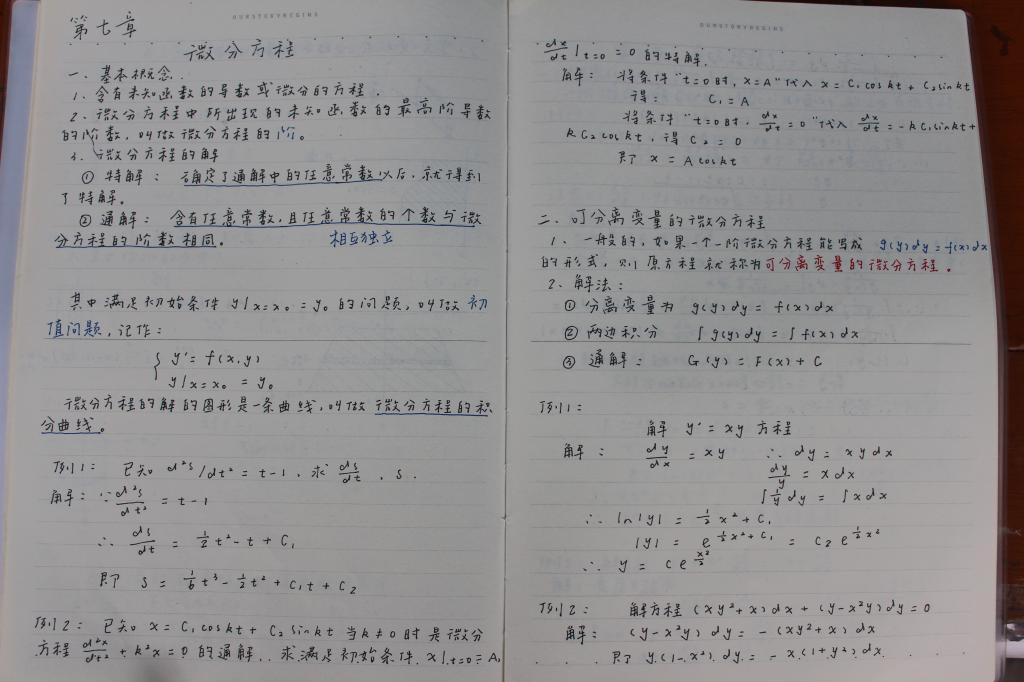 OURSTORYBEGINS
第七章
微分方程
一、基本概念
1、含有未知函数的导数或微分的方程.
2、微分方程中所出现的未知函数的最高阶导数
的阶数,叫做微分方程的阶。
3、微分方程的解
① 特解: 确定了通解中的任意常数以后,就得到
了特解。
② 通解: 含有任意常数,且任意常数的个数与微
分方程的阶数相同。 相互独立
其中满足初始条件 y|x=x₀ = y₀ 的问题,叫做 初
值问题,记作:
{ y' = f(x,y)
y|x=x₀ = y₀
微分方程的解的图形是一条曲线,叫做 微分方程的积
分曲线。
例1: 已知 d²s/dt² = t-1, 求 ds/dt , s.
解: ∵ d²s/dt² = t-1
∴ ds/dt = ½t² - t + C₁
即 s = 1/6 t³ - ½t² + C₁t + C₂
例2: 已知 x = C₁coskt + C₂sinkt 当 k≠0 时是微分
方程 d²x/dt² + k²x = 0 的通解. 求满足初始条件 x|t=0 = A,
OURSTORYBEGINS
dx/dt|t=0 = 0 的特解.
解: 将条件"t=0时, x=A"代入 x = C₁coskt + C₂sinkt
得: C₁ = A
将条件"t=0时, dx/dt = 0"代入 dx/dt = -kC₁sinkt+
kC₂coskt, 得 C₂ = 0
即 x = Acoskt
二、可分离变量的微分方程
1、一般的,如果一个一阶微分方程能写成 g(y)dy = f(x)dx
的形式,则原方程就称为可分离变量的微分方程。
2、解法:
① 分离变量为 g(y)dy = f(x)dx
② 两边积分 ∫g(y)dy = ∫f(x)dx
③ 通解: G(y) = F(x) + C
例1:
解 y' = xy 方程
解: dy/dx = xy ∴ dy = xydx
dy/y = xdx
∫1/y dy = ∫xdx
∴ ln|y| = ½x² + C₁
|y| = e^(½x²+C₁) = C₂e^(½x²)
∴ y = Ce^(x²/2)
例2: 解方程 (xy²+x)dx + (y-x²y)dy = 0
解: (y-x²y)dy = -(xy²+x)dx
即 y(1-x²)dy = -x(1+y²)dx